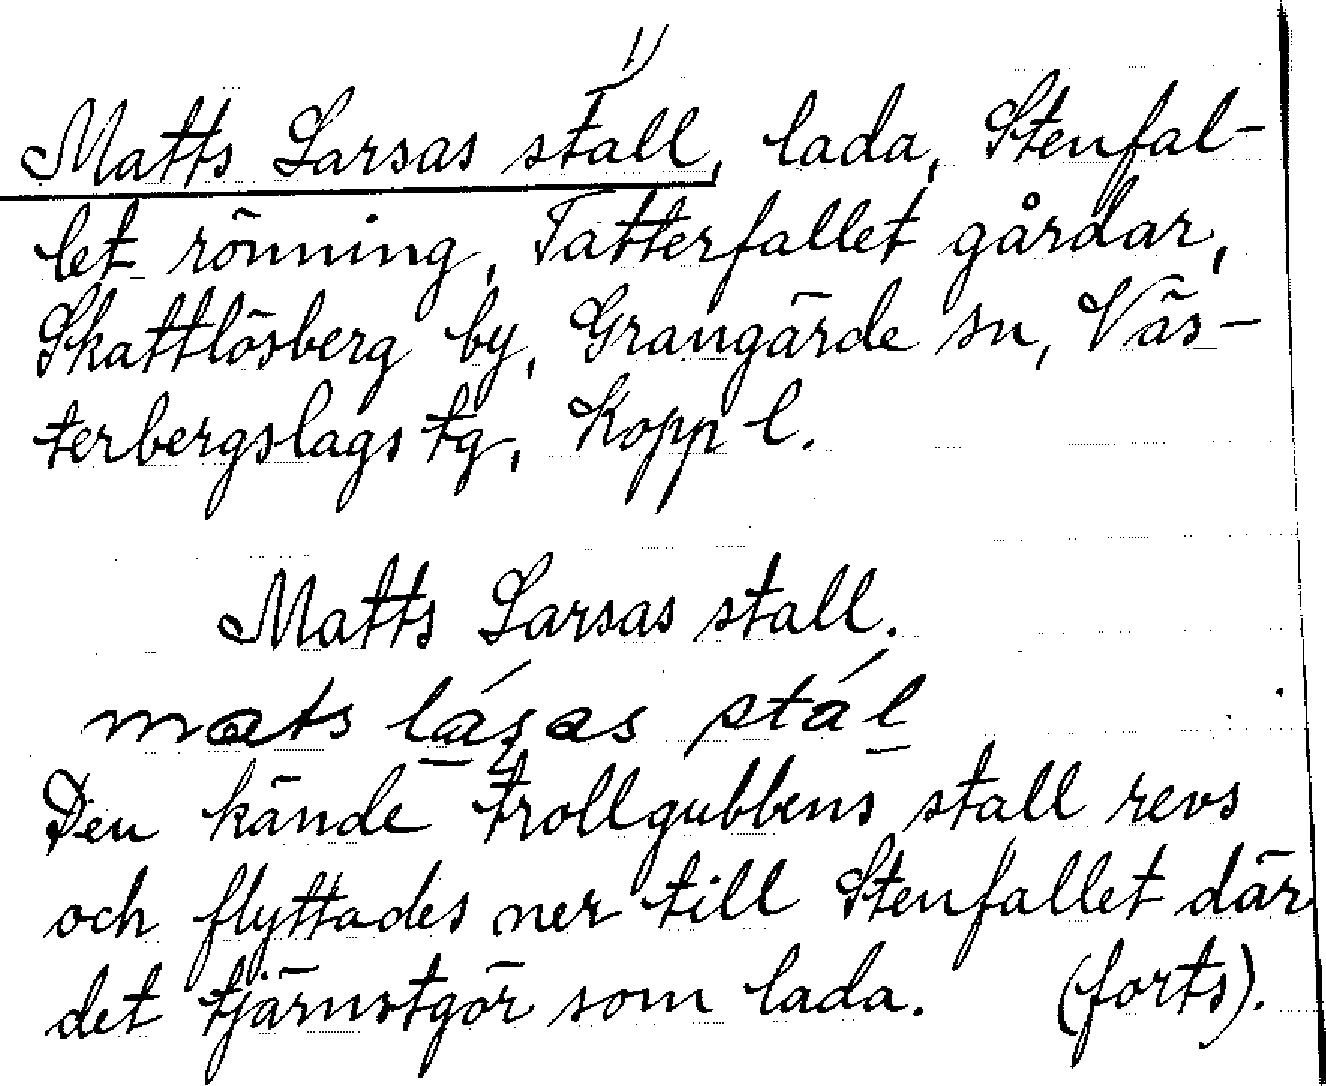 1)
Matts Larsas stall, lada, Stenfal-
let rönning, Tatterfallet gårdar,
Skattlösberg by, Grangärde sn, Väs-
terbergslags tg, Kopp l.
Matts Larsas stall.
mats lásas stál
Den kände trollgubbens stall revs
och flyttades ner till Stenfallet där
det tjärnstgör som lada. (forts).